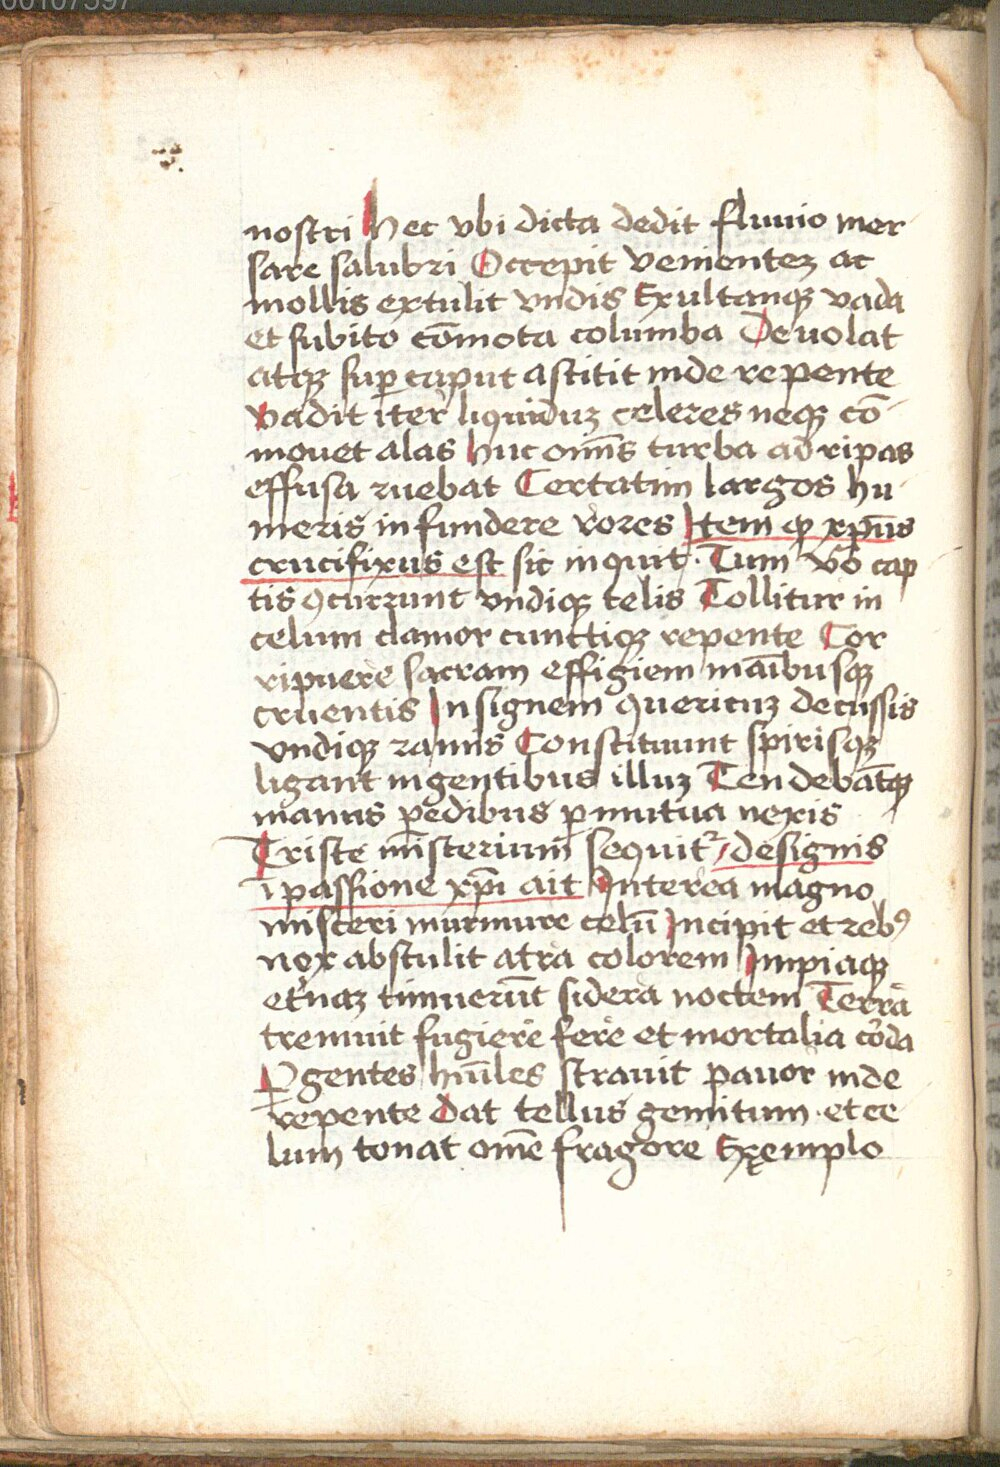 nostri Hec vbi dicta dedit fluuio mer
sare salubri Occepit venientez ac
mollis extulit vndis Exultantqꝫ vada
et subito cōmota columba Deuolat
atqꝫ suꝑ caput astitit inde repente
Vadit iter liquiduz celeres neqꝫ cō
mouet alas Huc omīs turba ad ripas
effusa ruebat Certatim largos hu
meris infundere rores Item ꝙ xp̄us
crucifixus est sic inquit. Tum v̄o cap
tis ꝯcurrunt vndiqꝫ telis Tollitur in
celum clamor cunctiqꝫ repente Cor
ripuere sacram effigiem māibusqꝫ
cruentis Insignem quericuz decussis
vndiqꝫ ramis Constituunt spirisqꝫ
ligant ingentibus illuz Tendebātqꝫ
manus pedibus ꝑ mutua nexis
Triste misterium sequitᷣ de signis
ī passione xp̄i ait Interea magno
misceri murmure celū Incipit et rebꝰ
nox abstulit atra colorem Impiaqꝫ
et̓naz timuerūt sidera noctem Terra
tremuit fugiere fere et mortalia cōda
Ꝑ gentes hūiles strauit pauor inde
repente Dat tellus gemitum et ce
lum tonat omē fragore Exemplo